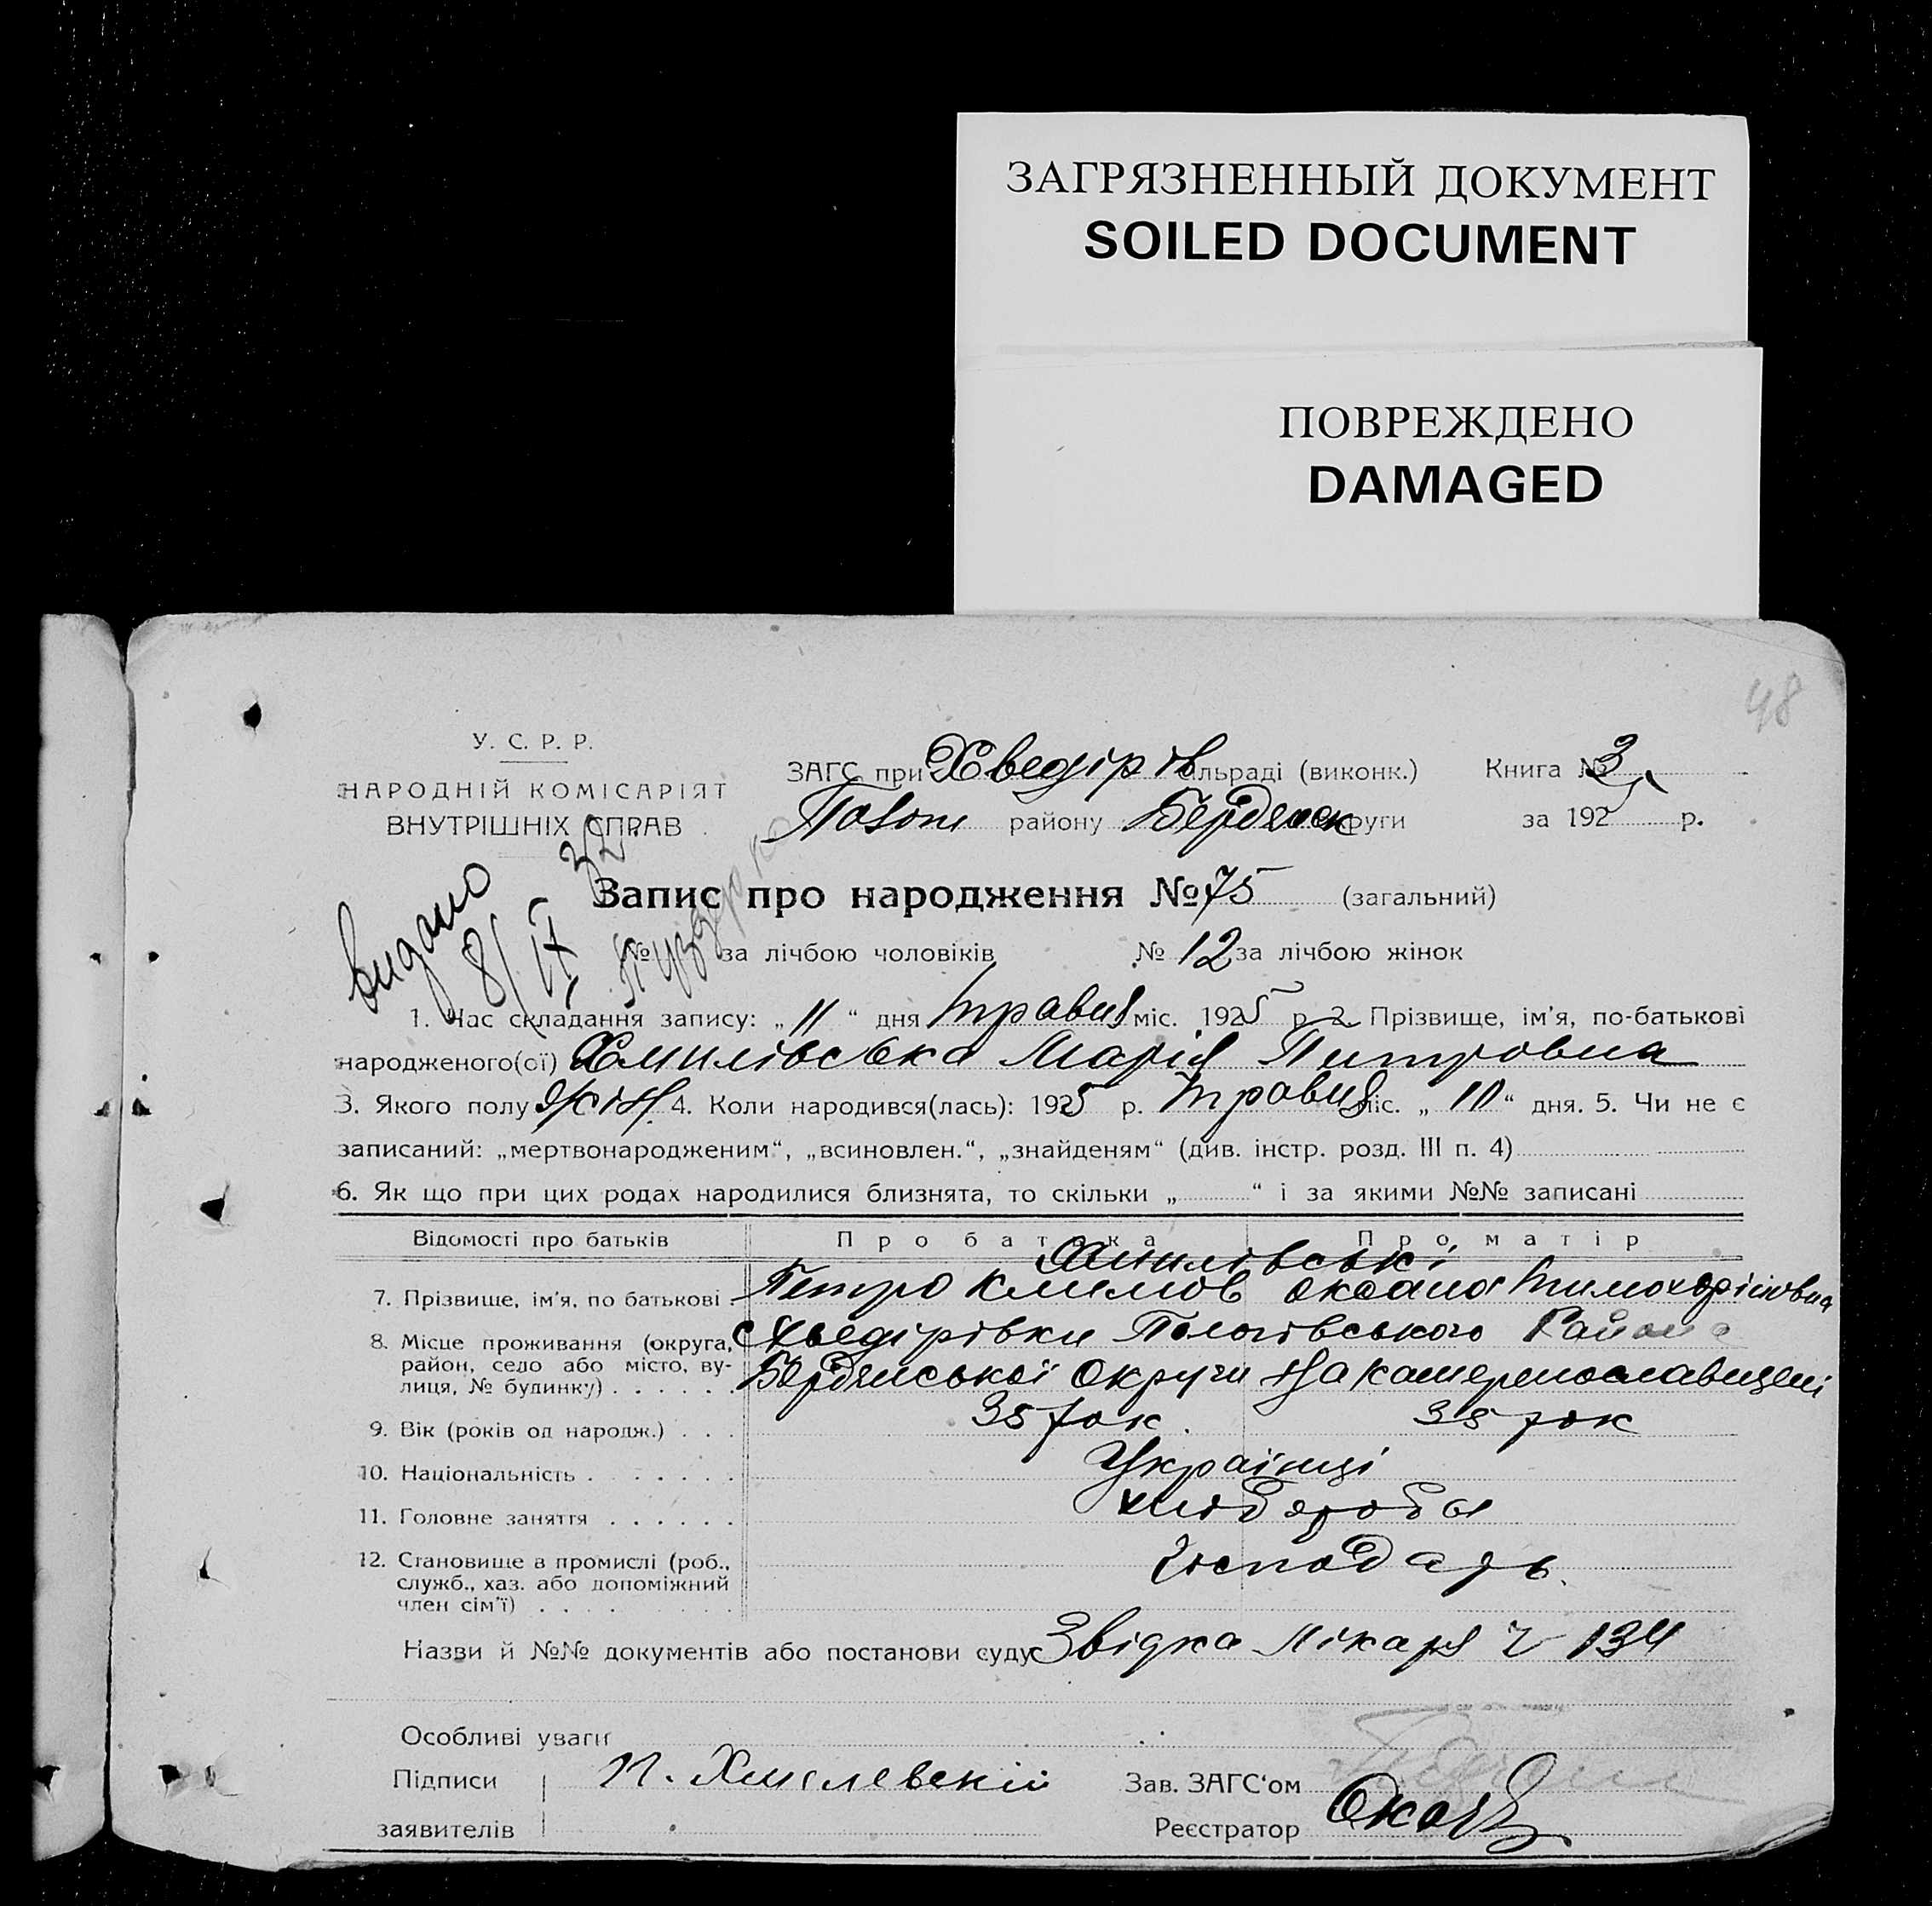 ЗАГРЯЗНЕННЫЙ ДОКУМЕНТ
SOILED DOCUMENT
ПОВРЕЖДЕНО
DAMAGED
48
У. С. Р. Р.
НАРОДНІЙ КОМІСАРІЯТ
ВНУТРІШНІХ СПРАВ
ЗАГС при Хведірів сільраді (виконк.) Книга № 3
району Бердянск округи за 1925 р.
видано
8/IX 32
Запис про народження № 75 (загальний)
№ за лічбою чоловіків № 12 за лічбою жінок
1. Час складання запису: „11“ дня травня міс. 1925 р. 2. Прізвище, ім'я, по-батькові
народженого(ої) Хмилівська Марія Питровна
3. Якого полу жін. 4. Коли народився(лась): 1925 р. травня міс. „10“ дня. 5. Чи не є
записаний: „мертвонародженим“, „всиновлен.“, „знайденям“ (див. інстр. розд. III п. 4)
6. Як що при цих родах народилися близнята, то скільки „ “ і за якими №№ записані
Відомості про батьків Про батька Про матір
Хмилівські
7. Прізвище, ім'я, по батькові . Петро Климов Оксана
8. Місце проживання (округа, с Хведірівки Пологівського Района
район, село або місто, ву-
лиця, № будинку) . . . . . . Бердянської Округи на катеренославщені
9. Вік (років од народж.) . . . 35 рок. 35 рок
10. Національність . . . . . . . Українці
11. Головне заняття . . . . . . хлібороби
12. Становище в промислі (роб., Господарь.
служб., хаз. або допоміжний
член сім'ї) . . . . . . . . .
Назви й №№ документів або постанови суду Звідка Лікаря ч 134
Особливі уваги
Підписи П. Хмелевскій Зав. ЗАГС'ом
заявителів Реєстратор